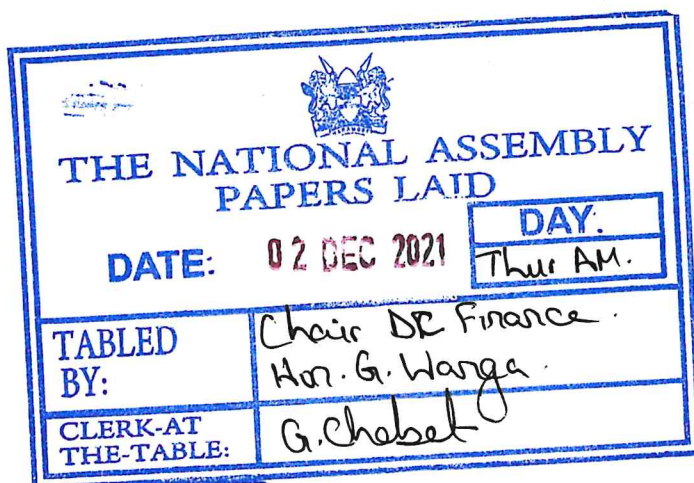 THE NATIONAL ASSEMBLY
PAPERS LAID
DATE: 02 DEC 2021
DAY:
Thur AM.
TABLED BY:
Chair DC Finance.
Hon. G. Wanga.
CLERK-AT THE-TABLE:
G. Chebet